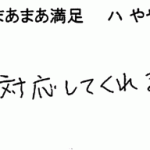 まあまあ満足 ハ やや
対応してくれ